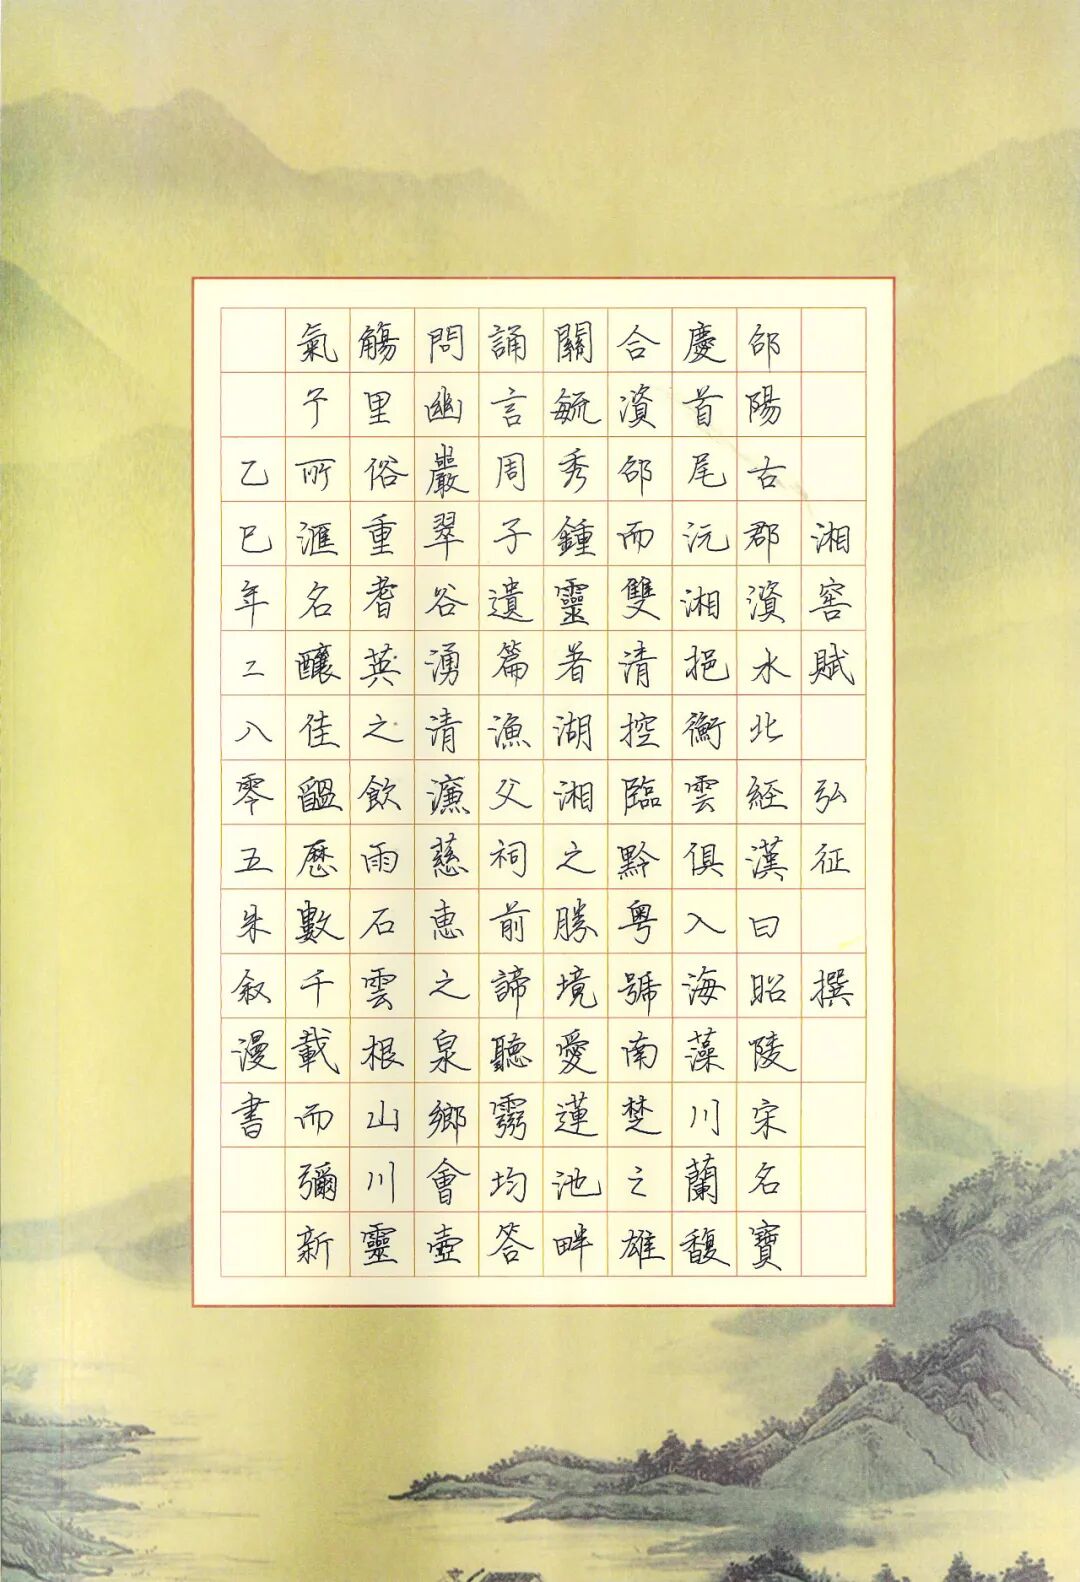 湘窖賦 弘征 撰
邵陽古郡澬水北經漢曰昭陵宋名寶
慶首尾沅湘挹衡雲俱入海藻川蘭馥
合澬邵而雙清控臨黔粵號南楚之雄
關毓秀鍾靈者湖湘之勝境愛蓮池畔
誦言周子遺篇漁父祠前諦聽均答
問幽巖翠谷湧清濂慈惠之泉鄉會壺
觴里俗重耆英之飲雨石雲根山川靈
氣于所滙名釀佳醞歷數千載而彌新
乙巳年二八零五朱叙漫書